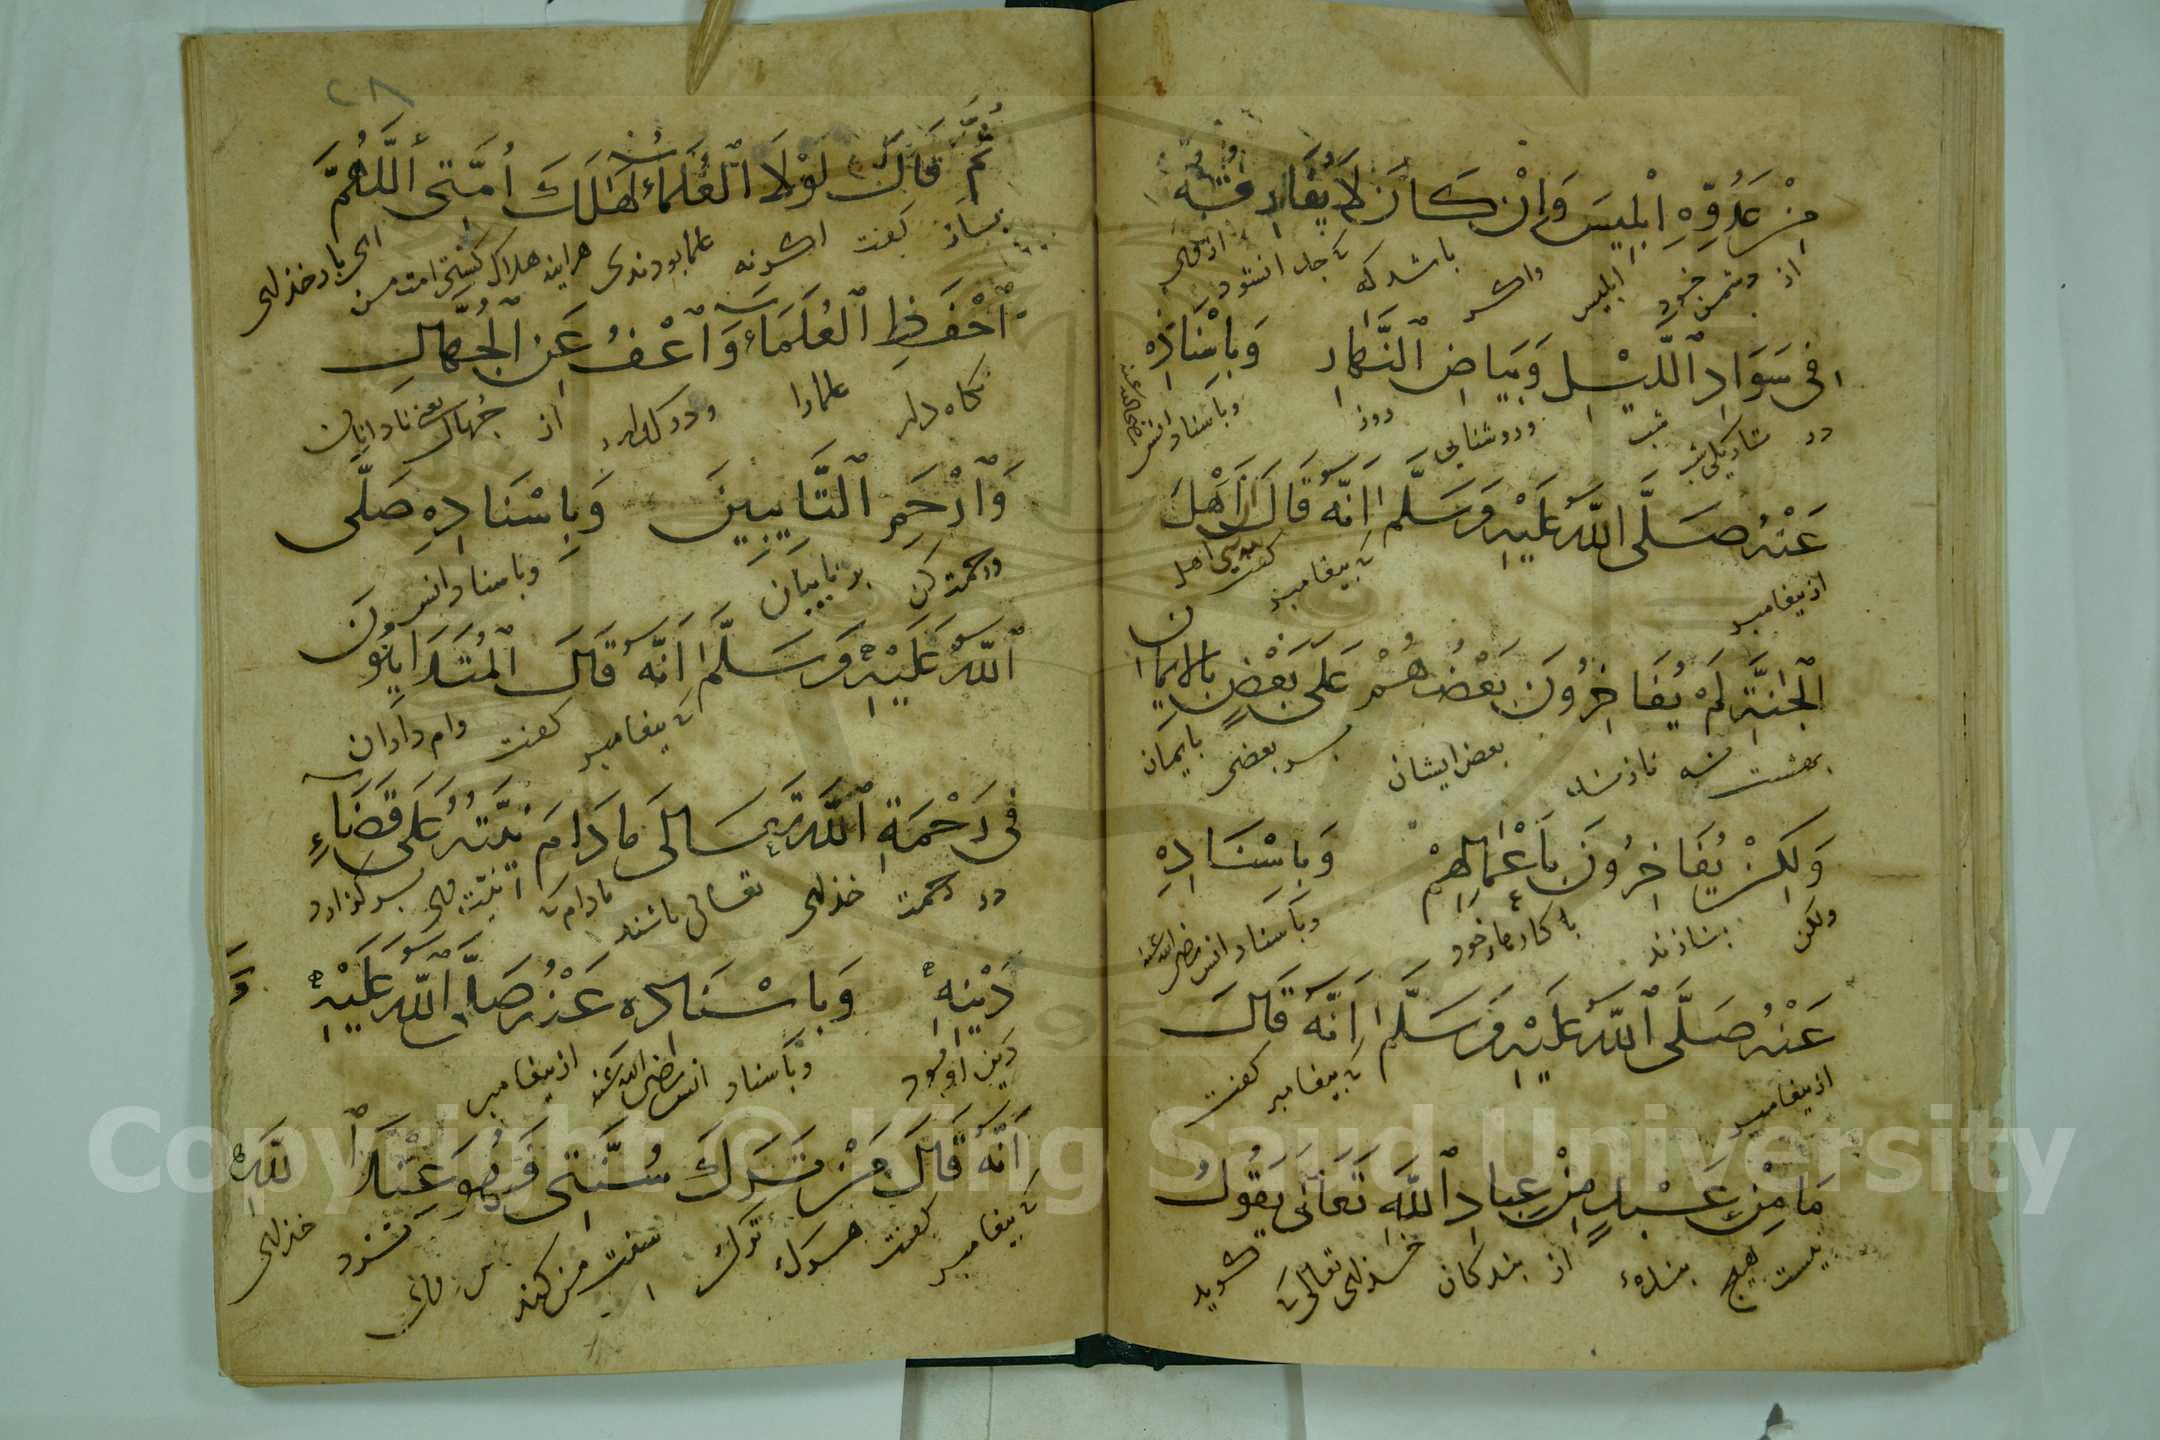 مِنْ عَدُوِّهِ اِبْلِيسَ وَاِنْ كَانَ لَا يُفَارِقُهُ
از دشمن خود ابليس واكر باشد كه جدا نشود از وى
فِى سَوَادِ ٱللَّيْلِ وَبَيَاضِ ٱلنَّهَارِ وَبِاِسْنَادِهِ
در تاريكى شب وروشنايى روز وباسناد انس رضى الله عنه
عَنْهُ صَلَّى اللّٰهُ عَلَيْهِ وَسَلَّمَ اَنَّهُ قَالَ اَهْلُ
از پيغامبر كه پيغامبر كفت اهل
ٱلْجَنَّةِ لَمْ يُفَاخِرُونَ بَعْضُهُمْ عَلَى بَعْضٍ بِالْاِيمَانِ
بهشت نه نازند بعض ايشان بر بعضى بايمان
وَلٰكِنْ يُفَاخِرُونَ بِاَعْمَالِهِمْ وَبِاِسْنَادِهِ
ولكن بنازند با كارهاء خود وباسناد انس رضى الله عنه
عَنْهُ صَلَّى ٱللّٰهُ عَلَيْهِ وَسَلَّمَ اَنَّهُ قَالَ
از پيغامبر كه پيغامبر كفت
مَا مِنْ عَبْدٍ مِنْ عِبَادِ ٱللّٰهِ تَعَالَى يَقُولُ
نيست هيچ بندهٔ از بندكان خداى تعالى كه كويد
٢٨
ثُمَّ قَالَ لَوْلَا ٱلْعُلَمَاءُ لَهَلَكَ اُمَّتِى ٱللّٰهُمَّ
پس از كفت اكر نه علما بودندى هراينه هلاك كشتى امت من اى بار خداى
ٱحْفَظِ ٱلْعُلَمَاءَ وَٱعْفُ عَنِ ٱلْجُهَّالِ
نكاه دار علما را ودر كذار از جهال يعنى نادانان
وَٱرْحَمِ ٱلتَّايِبِينَ وَبِاِسْنَادِهِ صَلَّى
ورحمت كن بر تايبان وباسناد انس
ٱللّٰهُ عَلَيْهِ وَسَلَّمَ اَنَّهُ قَالَ ٱلْمُتَدَايِنُونَ
كه پيغامبر كفت وام داران
فِى رَحْمَةِ ٱللّٰهِ تَعَالَى مَادَامَ نِيَّتُهُ عَلَى قَضَاءِ
در رحمت خداى تعالى باشند مادام كه نيت وى بر كزارد
دَيْنِهِ وَبِاِسْنَادِهِ عَنْهُ صَلَّى ٱللّٰهُ عَلَيْهِ
دين او بود وباسناد انس رضى الله عنه از پيغامبر
اَنَّهُ قَالَ مَنْ تَرَكَ سُنَّتِى فَهُوَ عِنْدَ ٱللّٰهِ
كه پيغامبر كفت هر كه ترك سنت من كند پس وى نزد خداى
Copyright © King Saud University